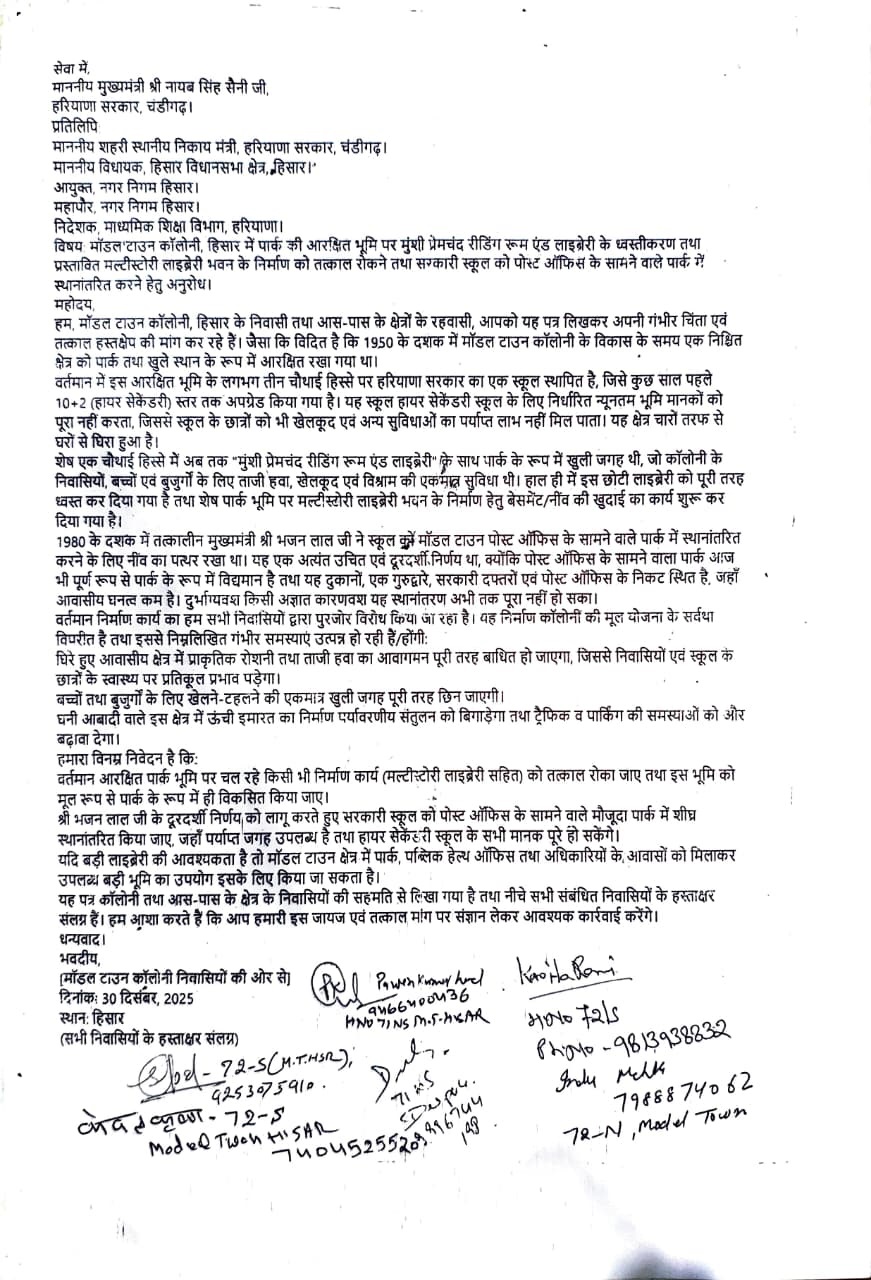 सेवा में,
माननीय मुख्यमंत्री श्री नायब सिंह सैनी जी,
हरियाणा सरकार, चंडीगढ़।
प्रतिलिपि
माननीय शहरी स्थानीय निकाय मंत्री, हरियाणा सरकार, चंडीगढ़।
माननीय विधायक, हिसार विधानसभा क्षेत्र, हिसार।
आयुक्त, नगर निगम हिसार।
महापौर, नगर निगम हिसार।
निदेशक, माध्यमिक शिक्षा विभाग, हरियाणा।
विषय: मॉडल टाउन कॉलोनी, हिसार में पार्क की आरक्षित भूमि पर मुंशी प्रेमचंद रीडिंग रूम एंड लाइब्रेरी के ध्वस्तीकरण तथा
प्रस्तावित मल्टीस्टोरी लाइब्रेरी भवन के निर्माण को तत्काल रोकने तथा सरकारी स्कूल को पोस्ट ऑफिस के सामने वाले पार्क में
स्थानांतरित करने हेतु अनुरोध।
महोदय,
हम, मॉडल टाउन कॉलोनी, हिसार के निवासी तथा आस-पास के क्षेत्रों के रहवासी, आपको यह पत्र लिखकर अपनी गंभीर चिंता एवं
तत्काल हस्तक्षेप की मांग कर रहे हैं। जैसा कि विदित है कि 1950 के दशक में मॉडल टाउन कॉलोनी के विकास के समय एक निश्चित
क्षेत्र को पार्क तथा खुले स्थान के रूप में आरक्षित रखा गया था।
वर्तमान में इस आरक्षित भूमि के लगभग तीन चौथाई हिस्से पर हरियाणा सरकार का एक स्कूल स्थापित है, जिसे कुछ साल पहले
10+2 (हायर सेकेंडरी) स्तर तक अपग्रेड किया गया है। यह स्कूल हायर सेकेंडरी स्कूल के लिए निर्धारित न्यूनतम भूमि मानकों को
पूरा नहीं करता, जिससे स्कूल के छात्रों को भी खेलकूद एवं अन्य सुविधाओं का पर्याप्त लाभ नहीं मिल पाता। यह क्षेत्र चारों तरफ से
घरों से घिरा हुआ है।
शेष एक चौथाई हिस्से में अब तक "मुंशी प्रेमचंद रीडिंग रूम एंड लाइब्रेरी" के साथ पार्क के रूप में खुली जगह थी, जो कॉलोनी के
निवासियों, बच्चों एवं बुजुर्गों के लिए ताजी हवा, खेलकूद एवं विश्राम की एकमात्र सुविधा थी। हाल ही में इस छोटी लाइब्रेरी को पूरी तरह
ध्वस्त कर दिया गया है तथा शेष पार्क भूमि पर मल्टीस्टोरी लाइब्रेरी भवन के निर्माण हेतु बेसमेंट/नींव की खुदाई का कार्य शुरू कर
दिया गया है।
1980 के दशक में तत्कालीन मुख्यमंत्री श्री भजन लाल जी ने स्कूल को मॉडल टाउन पोस्ट ऑफिस के सामने वाले पार्क में स्थानांतरित
करने के लिए नींव का पत्थर रखा था। यह एक अत्यंत उचित एवं दूरदर्शी निर्णय था, क्योंकि पोस्ट ऑफिस के सामने वाला पार्क आज
भी पूर्ण रूप से पार्क के रूप में विद्यमान है तथा यह दुकानों, एक गुरुद्वारे, सरकारी दफ्तरों एवं पोस्ट ऑफिस के निकट स्थित है, जहाँ
आवासीय घनत्व कम है। दुर्भाग्यवश किसी अज्ञात कारणवश यह स्थानांतरण अभी तक पूरा नहीं हो सका।
वर्तमान निर्माण कार्य का हम सभी निवासियों द्वारा पुरजोर विरोध किया जा रहा है। यह निर्माण कॉलोनी की मूल योजना के सर्वथा
विपरीत है तथा इससे निम्नलिखित गंभीर समस्याएं उत्पन्न हो रही हैं/होंगी:
घिरे हुए आवासीय क्षेत्र में प्राकृतिक रोशनी तथा ताजी हवा का आवागमन पूरी तरह बाधित हो जाएगा, जिससे निवासियों एवं स्कूल के
छात्रों के स्वास्थ्य पर प्रतिकूल प्रभाव पड़ेगा।
बच्चों तथा बुजुर्गों के लिए खेलने-टहलने की एकमात्र खुली जगह पूरी तरह छिन जाएगी।
घनी आबादी वाले इस क्षेत्र में ऊंची इमारत का निर्माण पर्यावरणीय संतुलन को बिगाड़ेगा तथा ट्रैफिक व पार्किंग की समस्याओं को और
बढ़ावा देगा।
हमारा विनम्र निवेदन है कि:
वर्तमान आरक्षित पार्क भूमि पर चल रहे किसी भी निर्माण कार्य (मल्टीस्टोरी लाइब्रेरी सहित) को तत्काल रोका जाए तथा इस भूमि को
मूल रूप से पार्क के रूप में ही विकसित किया जाए।
श्री भजन लाल जी के दूरदर्शी निर्णय को लागू करते हुए सरकारी स्कूल को पोस्ट ऑफिस के सामने वाले मौजूदा पार्क में शीघ्र
स्थानांतरित किया जाए, जहाँ पर्याप्त जगह उपलब्ध है तथा हायर सेकेंडरी स्कूल के सभी मानक पूरे हो सकेंगे।
यदि बड़ी लाइब्रेरी की आवश्यकता है तो मॉडल टाउन क्षेत्र में पार्क, पब्लिक हेल्थ ऑफिस तथा अधिकारियों के आवासों को मिलाकर
उपलब्ध बड़ी भूमि का उपयोग इसके लिए किया जा सकता है।
यह पत्र कॉलोनी तथा आस-पास के क्षेत्र के निवासियों की सहमति से लिखा गया है तथा नीचे सभी संबंधित निवासियों के हस्ताक्षर
संलग्न हैं। हम आशा करते हैं कि आप हमारी इस जायज एवं तत्काल मांग पर संज्ञान लेकर आवश्यक कार्रवाई करेंगे।
धन्यवाद।
भवदीय,
[मॉडल टाउन कॉलोनी निवासियों की ओर से]
दिनांक: 30 दिसंबर, 2025
स्थान: हिसार
(सभी निवासियों के हस्ताक्षर संलग्न)
Pawan Kumar
9466400436
HNO 71NS M.T-HISAR
Kavita Rani
HONO 72/S
PhNo - 9813938832
72-S (M.T.HSR),
9253075910.
72-S
Model Twon HISAR
7404525520
Indu Mehta
7988874062
72-N, Model Town